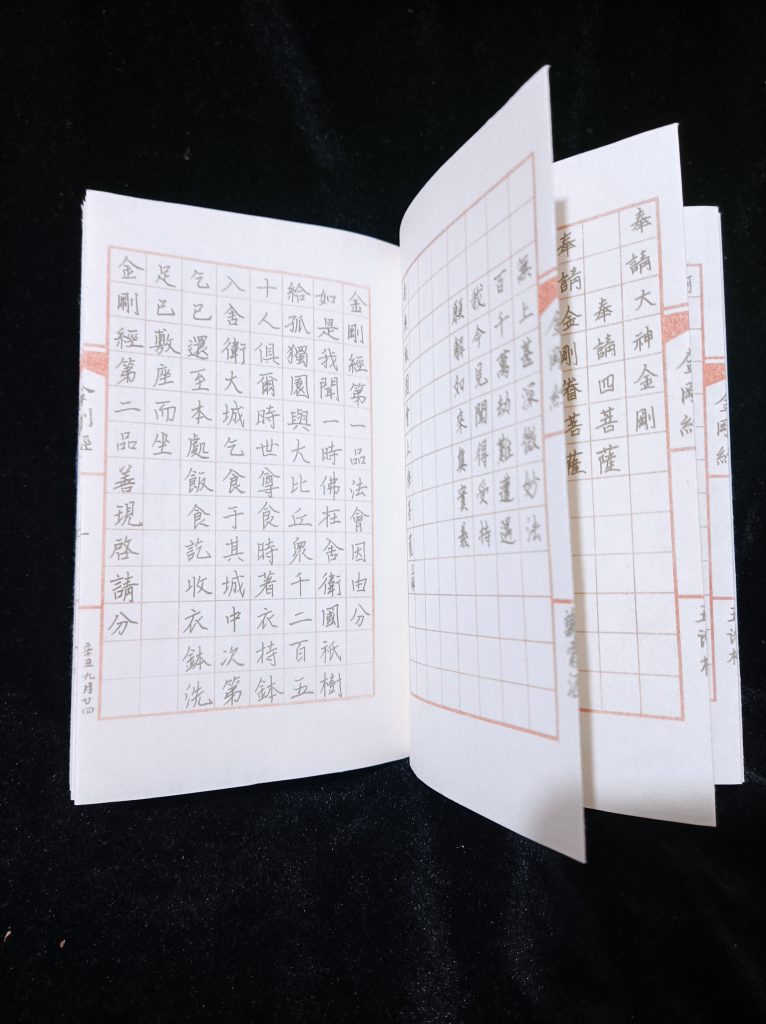 金剛經
金剛經
奉請大神金剛
奉請四菩薩
奉請金剛眷菩薩
金剛經
無上甚深微妙法
百千萬劫難遭遇
我今見聞得受持
願解如來真實義
金剛經第一品法會因由分
如是我聞一時佛在舍衛國祇樹
給孤獨園與大比丘衆千二百五
十人俱爾時世尊食時著衣持鉢
入舍衛大城乞食于其城中次第
乞已還至本處飯食訖收衣鉢洗
足已敷座而坐
金剛經第二品善現啓請分
金剛經
辛丑九月廿四